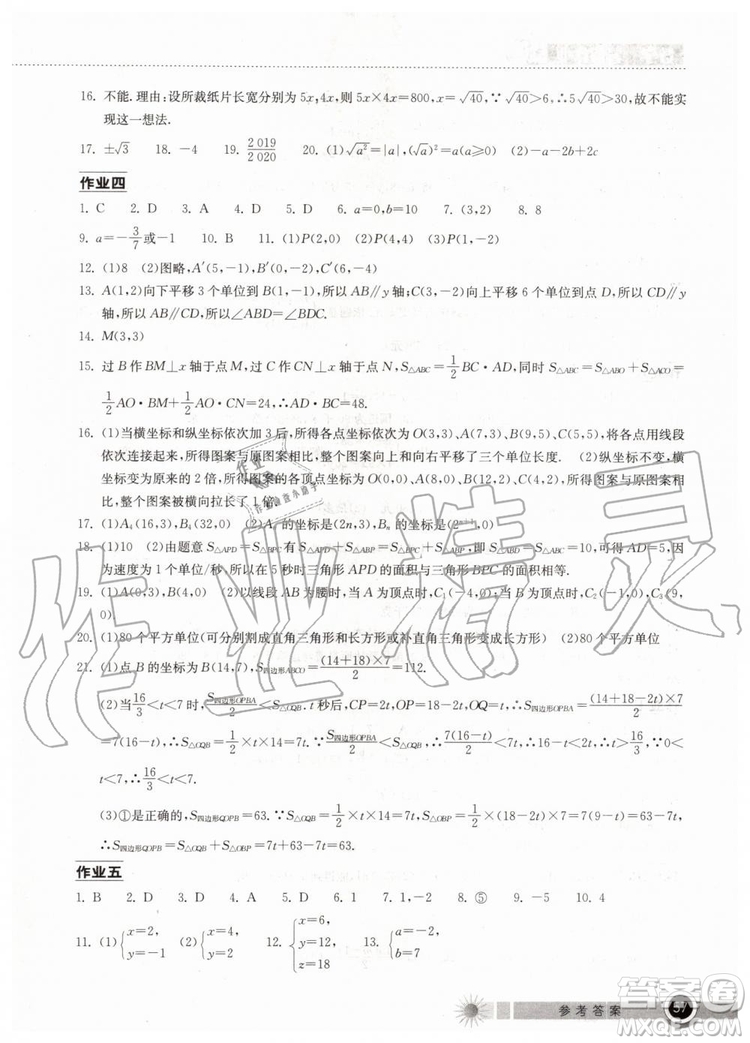 16. 不能. 理由:设所裁纸片长宽分别为 5x,4x,则 5x×4x=800,x=√40,∵√40>6,∴5√40>30,故不能实
现这一想法.
17. ±√3 18. －4 19. 2 019/2 020 20. (1)√a²=|a|,(√a)²=a(a≥0) (2)－a－2b+2c
作业四
1. C 2. D 3. A 4. D 5. D 6. a=0,b=10 7. (3,2) 8. 8
9. a=－3/7或－1 10. B 11. (1)P(2,0) (2)P(4,2)
12. (1)8 (2)图略,A′(5,－1),B′(3,－2)
13. A(1,2)向下平移 3 个单位到 B(1,－1),所以 AB∥y 轴;C(2,0)向上平移至点 D,所以 CD∥y
轴,所以 AB∥CD,所以∠ABD=∠BDC.
14. M(3,3)
15. 过 B 作 BM⊥x 轴于点 M,过 C 作 CN⊥x 轴于点 N,S△ABC=1/2 BC·AD,同时 S△ABC=S△ABO+S△ACO=
1/2 AO·BM+1/2 AO·CN=24,∴AD·BC=48.
16. (1)当横坐标和纵坐标依次加 3 后,所得各点坐标依次为 O(3,3)、A(7,7)、B(9,5),将各点用线段
依次连接起来,所得图案与原图案相比,整个图案向上向右平移了三个单位长度. (2)纵坐标不变,
横坐标变为原来的 2 倍,所得各点的坐标为 O(0,0)、A(8,4)、B(12,2),所得图案与原图案相
比,整个图案被横向拉长了 1 倍.
17. (1)A₄(16,3),B₄(32,0) (2)Aₙ的坐标是(2n,3),Bₙ的坐标是(2ⁿ⁺¹,0)
18. (1)10 (2)由题意 S△APD=S△BPC有 S△APD+S△ABP=S△BPC+S△ABP,即 S△ABD=S△ABC=10,可得 AD=5,因
为速度为 1 个单位/秒,所以在 5 秒时三角形 APD 的面积与三角形 BPC 的面积相等.
19. (1)A(0,3),B(4,0) (2)以线段 AB 为腰时,当 A 为顶点时,C₁(－4,0),当 B 为顶点时,C₂(－1,0),C₃(9,
0)
20. (1)80 个平方单位(可分别割成直角三角形和长方形或补直角三角形变成长方形) (2)80 个平方单位
21. (1)点 B 的坐标为(14,7),S四边形ABCO=(14+18)×7/2=112.
(2)当16/3<t<7 时,S四边形OPBA/2<S△OQB. t 秒后,CP=2t,OP=18－2t,OQ=t,∴S四边形OPBA=(14+18－2t)×7/2
=7(16－t),∴S△OQB=1/2×t×14=7t,∵S四边形OPBA/2<S△OQB,∴7(16－t)/2<7t,∴16－t<2t,∴t>16/3,又 0<t
<7,∴16/3<t<7.
(3)①是正确的,S四边形QOPB=63. ∵S△OQB=1/2×t×14=7t,S△OBP=1/2×(18－2t)×7=7(9－t),
∴S四边形QOPB=S△OQB+S△OBP=63,∴S四边形QOPB=63.
作业五
1. B 2. D 3. D 4. D 5. D 6. 1 7. 1,－2 8. ⑤ 9. －5 10. 4
11. (1){x=2,y=－1 (2){x=4,y=1 12. {x=6,y=12,z=18 13. {a=－2,b=7
参考答案
57
作业精灵
答案圈